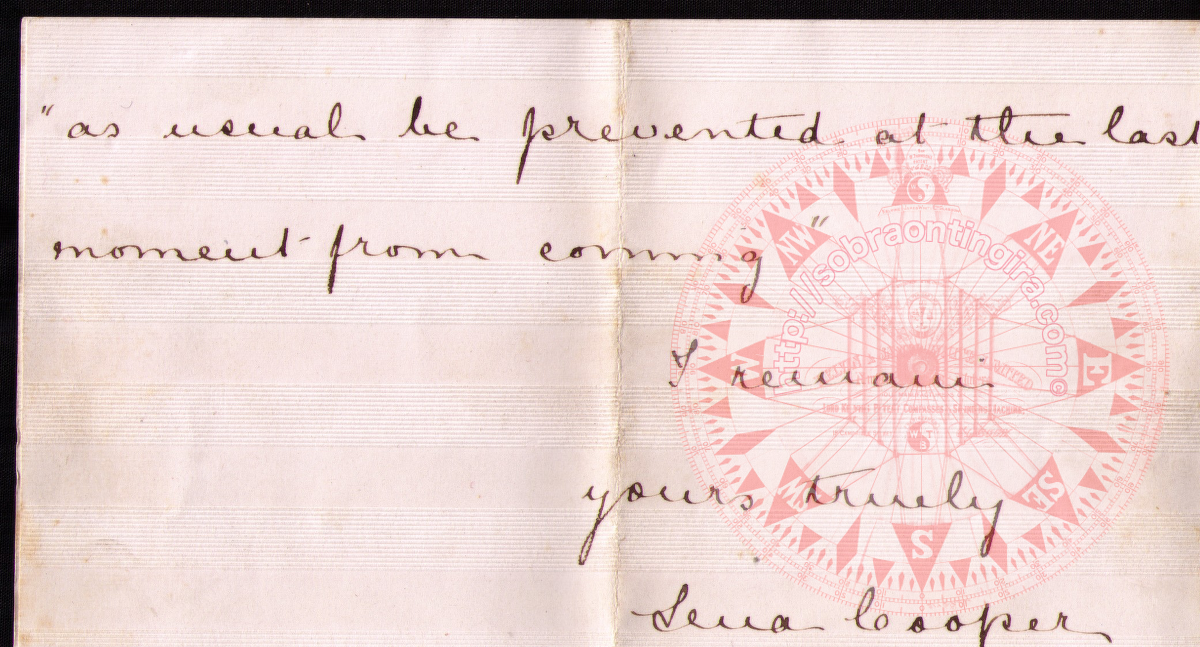 "as usual be prevented at the last
moment from coming"
I remain
yours truly
Lena Cooper
http://sobraontingira.com©
NW
NE
E
SE
S